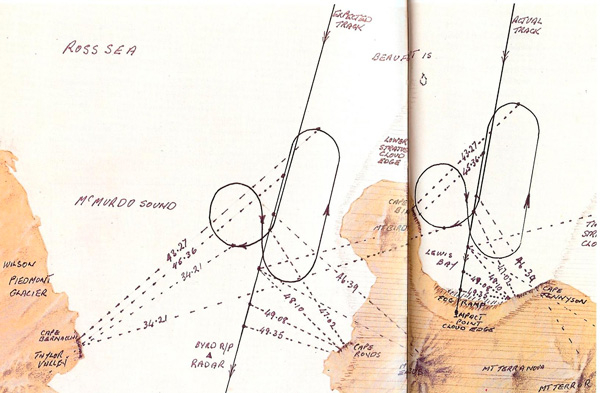 EXPECTED
TRACK
ACTUAL
TRACK
ROSS SEA
BEAUFORT IS
LOWER
STRATUS
CLOUD
EDGE
MCMURDO SOUND
CAPE
LEWIS
BAY
WILSON
PIEDMONT
GLACIER
CAPE
BERNACCHI
TAYLOR
VALLEY
43·27
46·36
34·21
34·21
46·39
48·10
47·02
49·08
49·35
BYRD R/P
RADAR
CAPE
ROYDS
43·27
46·36
46·39
48·10
49·08
49·35
FOG RAMP
IMPACT
POINT
CLOUD EDGE
CAPE
TENNYSON
MT TERRA NOVA
MT TERROR